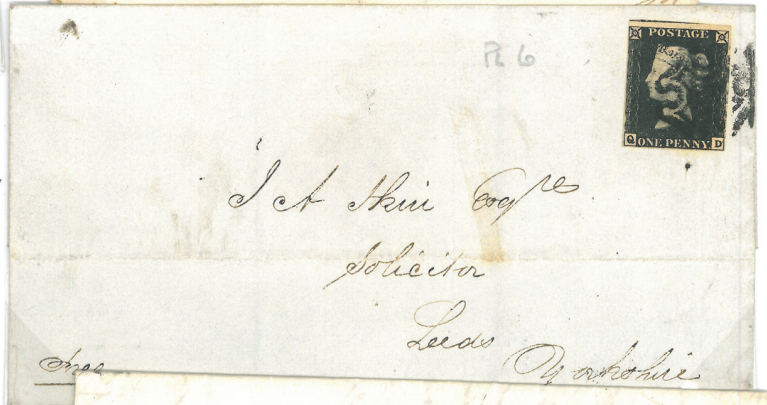 Pl 6
POSTAGE
ONE PENNY
Q D
J A Skin Esqre
Solicitor
Leeds
Yorkshire